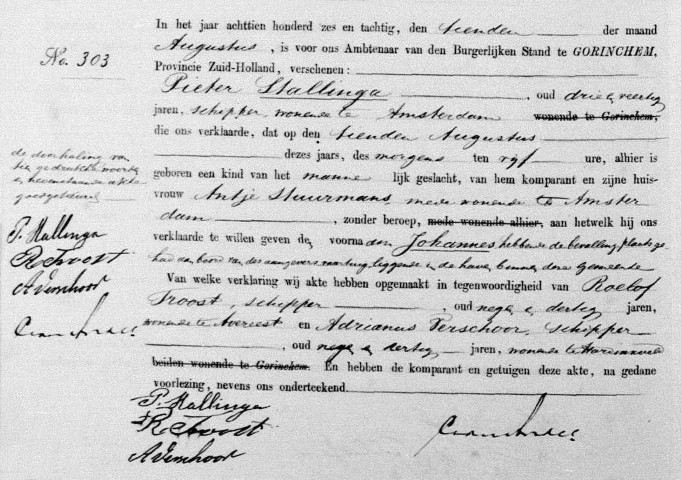 No. 303
In het jaar achttien honderd zes en tachtig, den tienden der maand
Augustus, is voor ons Ambtenaar van den Burgerlijken Stand te GORINCHEM,
Provincie Zuid-Holland, verschenen:
Pieter Stallinga, oud drie en veertig
jaren, schipper, wonende te Amsterdam wonende te Gorinchem,
die ons verklaarde, dat op den tienden Augustus
dezes jaars, des morgens ten vijf ure, alhier is
geboren een kind van het manne lijk geslacht, van hem komparant en zijne huis-
vrouw Antje Stuurmans, mede wonende te Amster
dam, zonder beroep, mede wonende alhier, aan hetwelk hij ons
verklaarde te willen geven de voornaam Johannes hebbende de bevalling plaats ge
had aan boord van des aangevers vaartuig liggende in de haven binnen deze Gemeente
Van welke verklaring wij akte hebben opgemaakt in tegenwoordigheid van Roelof
Troost, schipper, oud negen en dertig jaren,
wonende te Avereest en Adrianus Verschoor, schipper
, oud negen en dertig jaren, wonende te
beiden wonende te Gorinchem. En hebben de komparant en getuigen deze akte, na gedane
voorlezing, nevens ons onderteekend.
P. Stallinga
R Troost
A Verschoor
de doorhaling van
tien gedrukte woorden
in nevenstaande akte
goedgekeurd
P. Stallinga
R Troost
A Verschoor